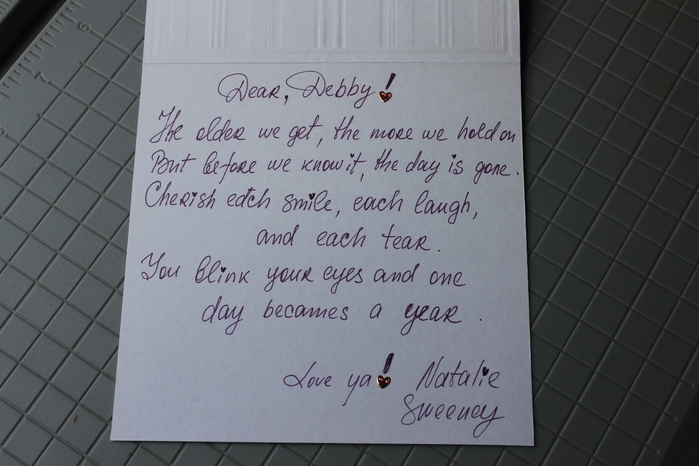 Dear, Debby!
The older we get, the more we hold on
But before we know it, the day is gone.
Cherish each smile, each laugh,
and each tear.
You blink your eyes and one
day becames a year.
Love ya! Natalie
Sweeney